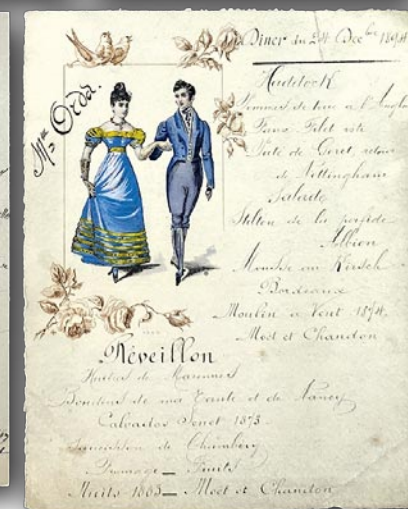 Dîner du 24 Décbre 1894
Mme Orda.
Haddock
Pommes de terre à l'Anglaise
Faux Filet rôti
Pâté de Goret, retour
de Nottingham
Salade
Stilton de la perfide
Albion
Mousse au Kirsch
Bordeaux
Moulin à Vent 1874
Moët et Chandon
Réveillon
Huîtres de Marennes
Boudins de ma Tante et de Nancy
Calvados Denet 1873
Saucisson de Chambéry
Fromage — Fruits
Nuits 1883 — Moët et Chandon